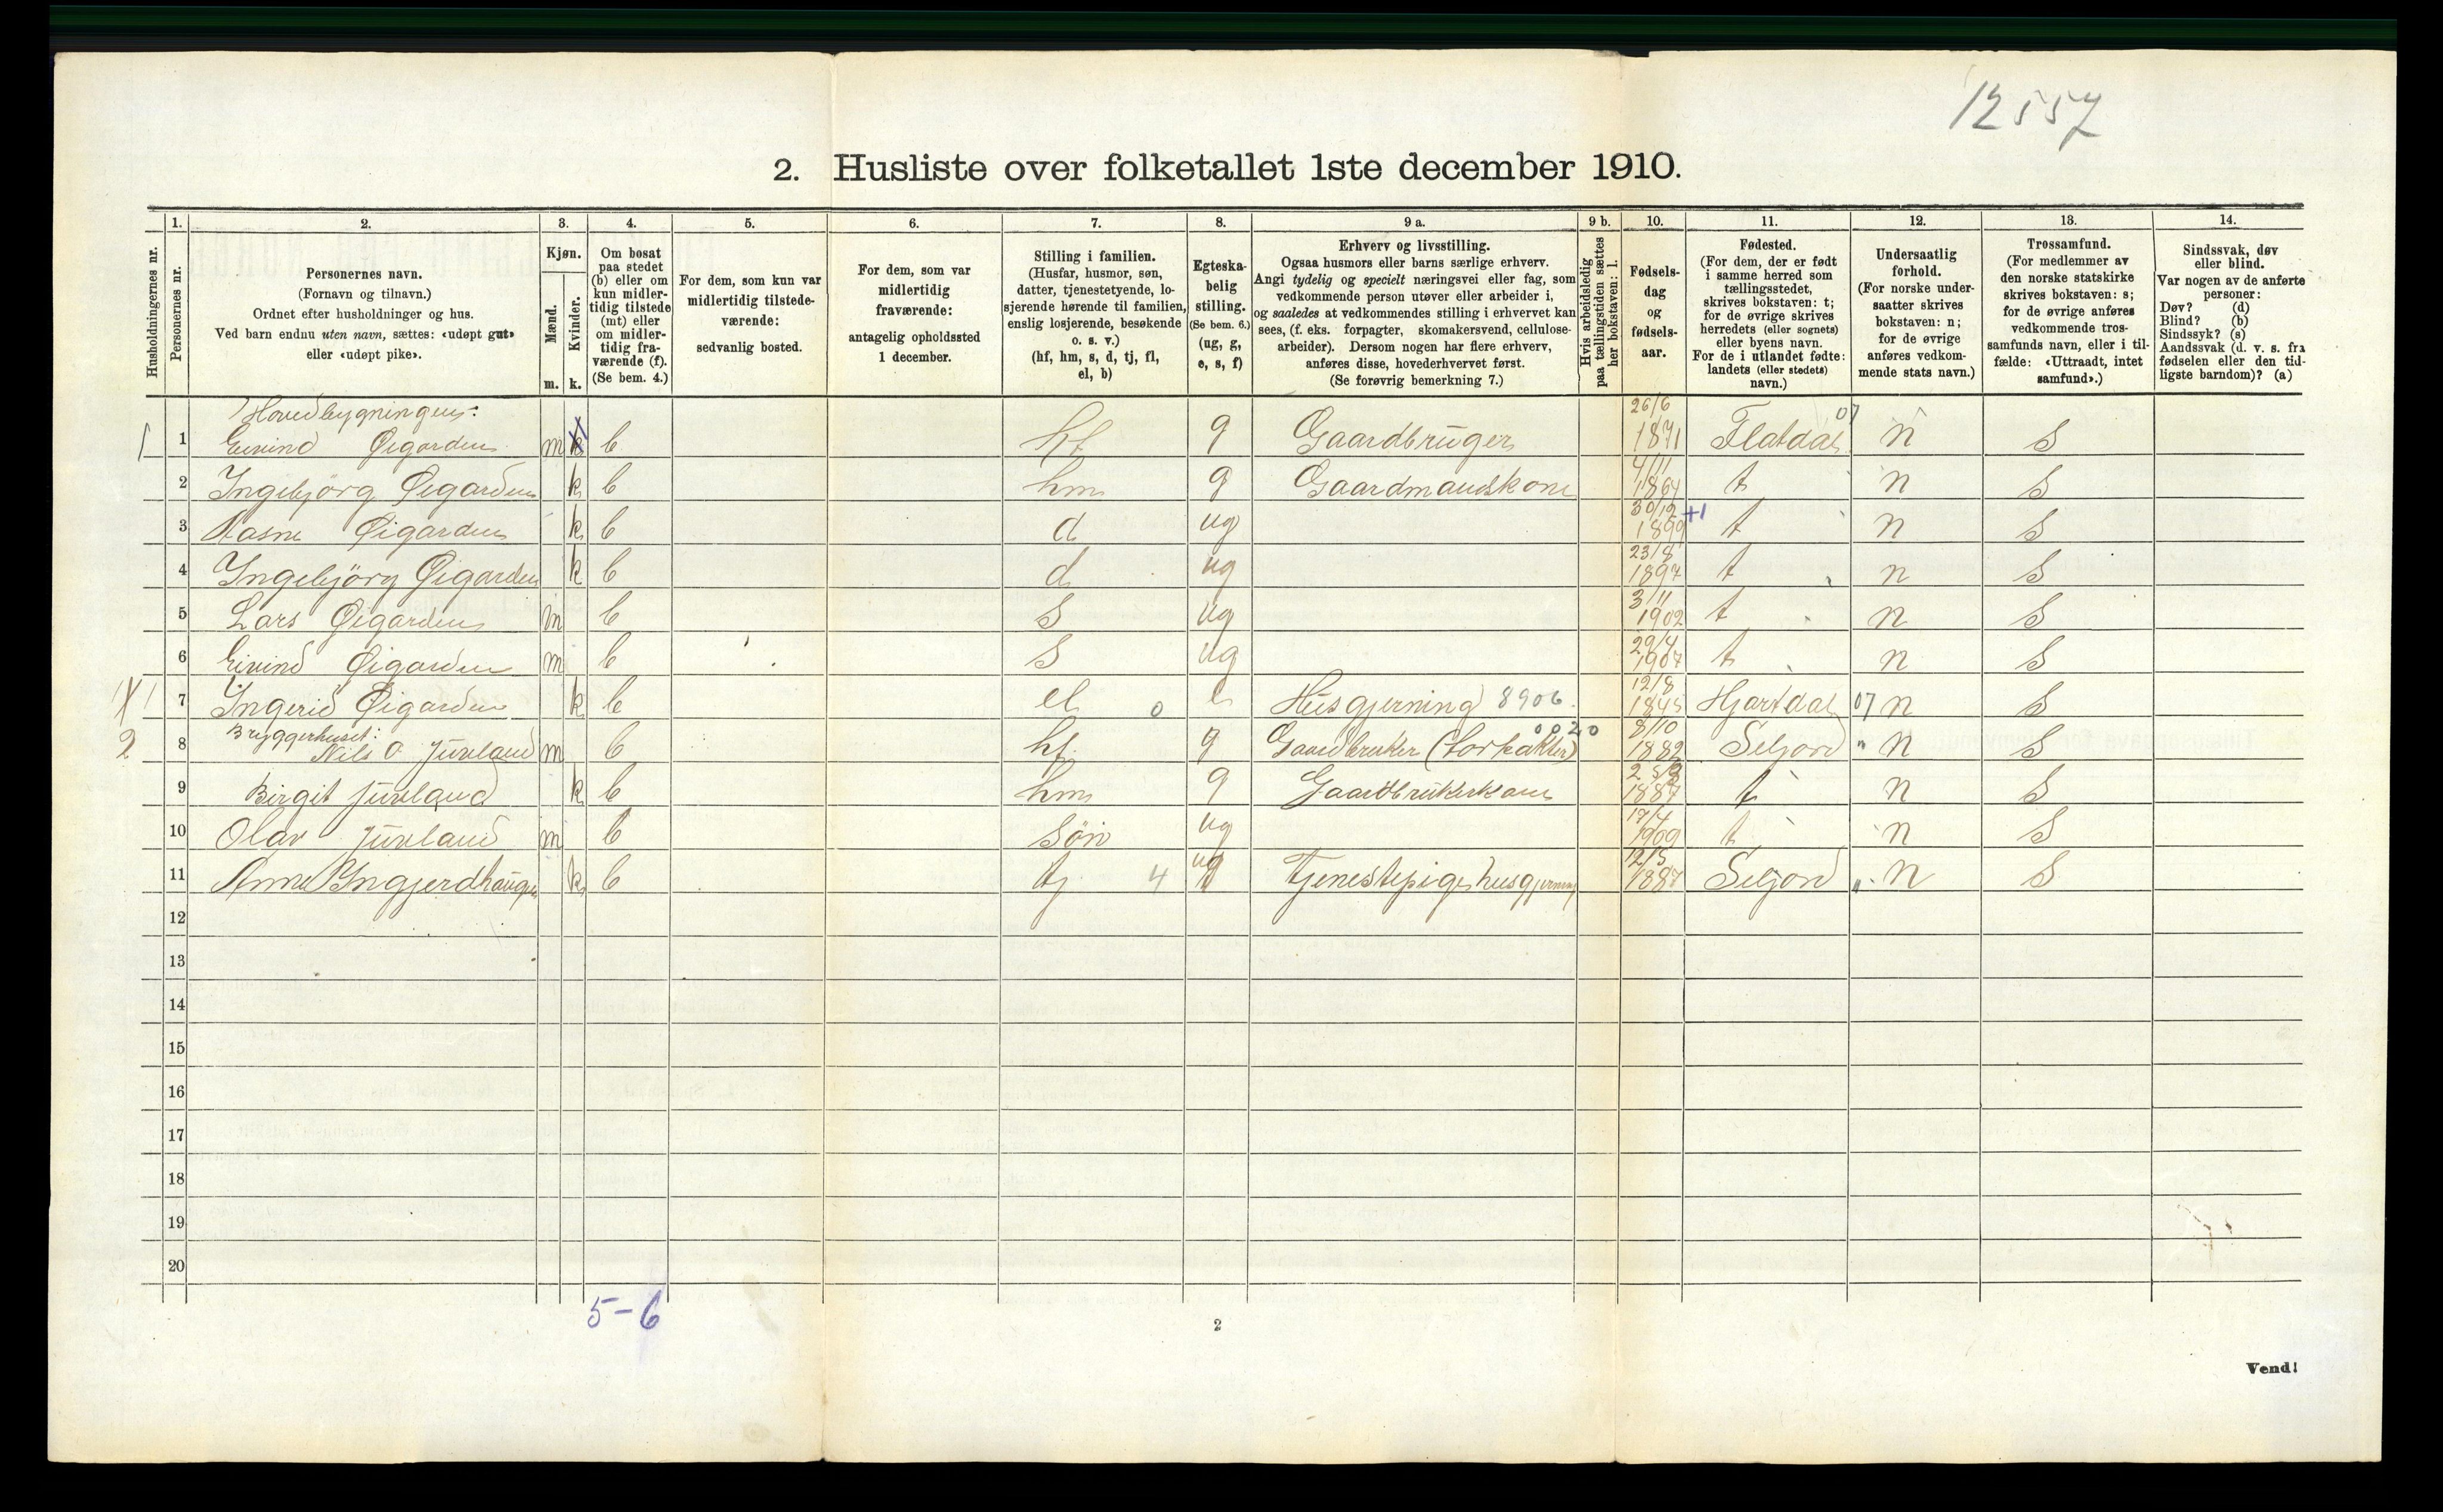 12557
2. Husliste over folketallet 1ste december 1910.
1. 2. 3. 4. 5. 6. 7. 8. 9 a. 9 b. 10. 11. 12. 13. 14.
Husholdningernes nr.
Personernes nr.
Personernes navn.
(Fornavn og tilnavn.)
Ordnet efter husholdninger og hus.
Ved barn endnu uten navn, sættes: «udøpt gut»
eller «udøpt pike».
Kjøn.
Mænd.
Kvinder.
m. k.
Om bosat
paa stedet
(b) eller om
kun midler-
tidig tilstede
(mt) eller
om midler-
tidig fra-
værende (f).
(Se bem. 4.)
For dem, som kun var
midlertidig tilstede-
værende:
sedvanlig bosted.
For dem, som var
midlertidig
fraværende:
antagelig opholdssted
1 december.
Stilling i familien.
(Husfar, husmor, søn,
datter, tjenestetyende, lo-
sjerende hørende til familien,
enslig losjerende, besøkende
o. s. v.)
(hf, hm, s, d, tj, fl,
el, b)
Egteska-
belig
stilling.
(Se bem. 6.)
(ug, g,
e, s, f)
Erhverv og livsstilling.
Ogsaa husmors eller barns særlige erhverv.
Angi tydelig og specielt næringsvei eller fag, som
vedkommende person utøver eller arbeider i,
og saaledes at vedkommendes stilling i erhvervet kan
sees, (f. eks. forpagter, skomakersvend, cellulose-
arbeider). Dersom nogen har flere erhverv,
anføres disse, hovederhvervet først.
(Se forøvrig bemerkning 7.)
Hvis arbeidsledig
paa tællingstiden sættes
her bokstaven: l.
Fødsels-
dag
og
fødsels-
aar.
Fødested.
(For dem, der er født
i samme herred som
tællingsstedet,
skrives bokstaven: t;
for de øvrige skrives
herredets (eller sognets)
eller byens navn.
For de i utlandet fødte:
landets (eller stedets)
navn.)
Undersaatlig
forhold.
(For norske under-
saatter skrives
bokstaven: n;
for de øvrige
anføres vedkom-
mende stats navn.)
Trossamfund.
(For medlemmer av
den norske statskirke
skrives bokstaven: s;
for de øvrige anføres
vedkommende tros-
samfunds navn, eller i til-
fælde: «Uttraadt, intet
samfund».)
Sindssvak, døv
eller blind.
Var nogen av de anførte
personer:
Døv? (d)
Blind? (b)
Sindssyk? (s)
Aandssvak (d. v. s. fra
fødselen eller den tid-
ligste barndom)? (a)
Hovedbygningen:
1 1 Eivind Øigarden m b hf g Gaardbruger 26/6 1871 Flatdal 07 n s
2 Ingebjörg Øigarden k b hm g Gaardmandskone 4/11 1864 t n s
3 Aasne Øigarden k b d ug 30/12 1899 +1 t n s
4 Ingebjörg Øigarden k b d ug 23/8 1897 t n s
5 Lars Øigarden m b s ug 3/11 1902 t n s
6 Eivind Øigarden m b s ug 29/4 1907 t n s
7 Ingerid Øigarden k b el 0 e Husgjerning 8906 12/8 1845 Hjartdal 07 n s
Bryggerhuset:
2 8 Nils O. Juvland m b hf g Gaardbruker (forpakter) 0020 8/10 1882 Seljord " n s
9 Birgit Juvland k b hm g Gaardbrukerkone 1887 t n s
10 Olav Juvland m b Sön ug 17/4 1909 t n s
11 Anne Yngjerdhaugen k b tj 4 ug Tjenestepige husgjerning 12/5 1887 Seljord " n s
12
13
14
15
16
17
18
19
20
5-6
2
Vend!